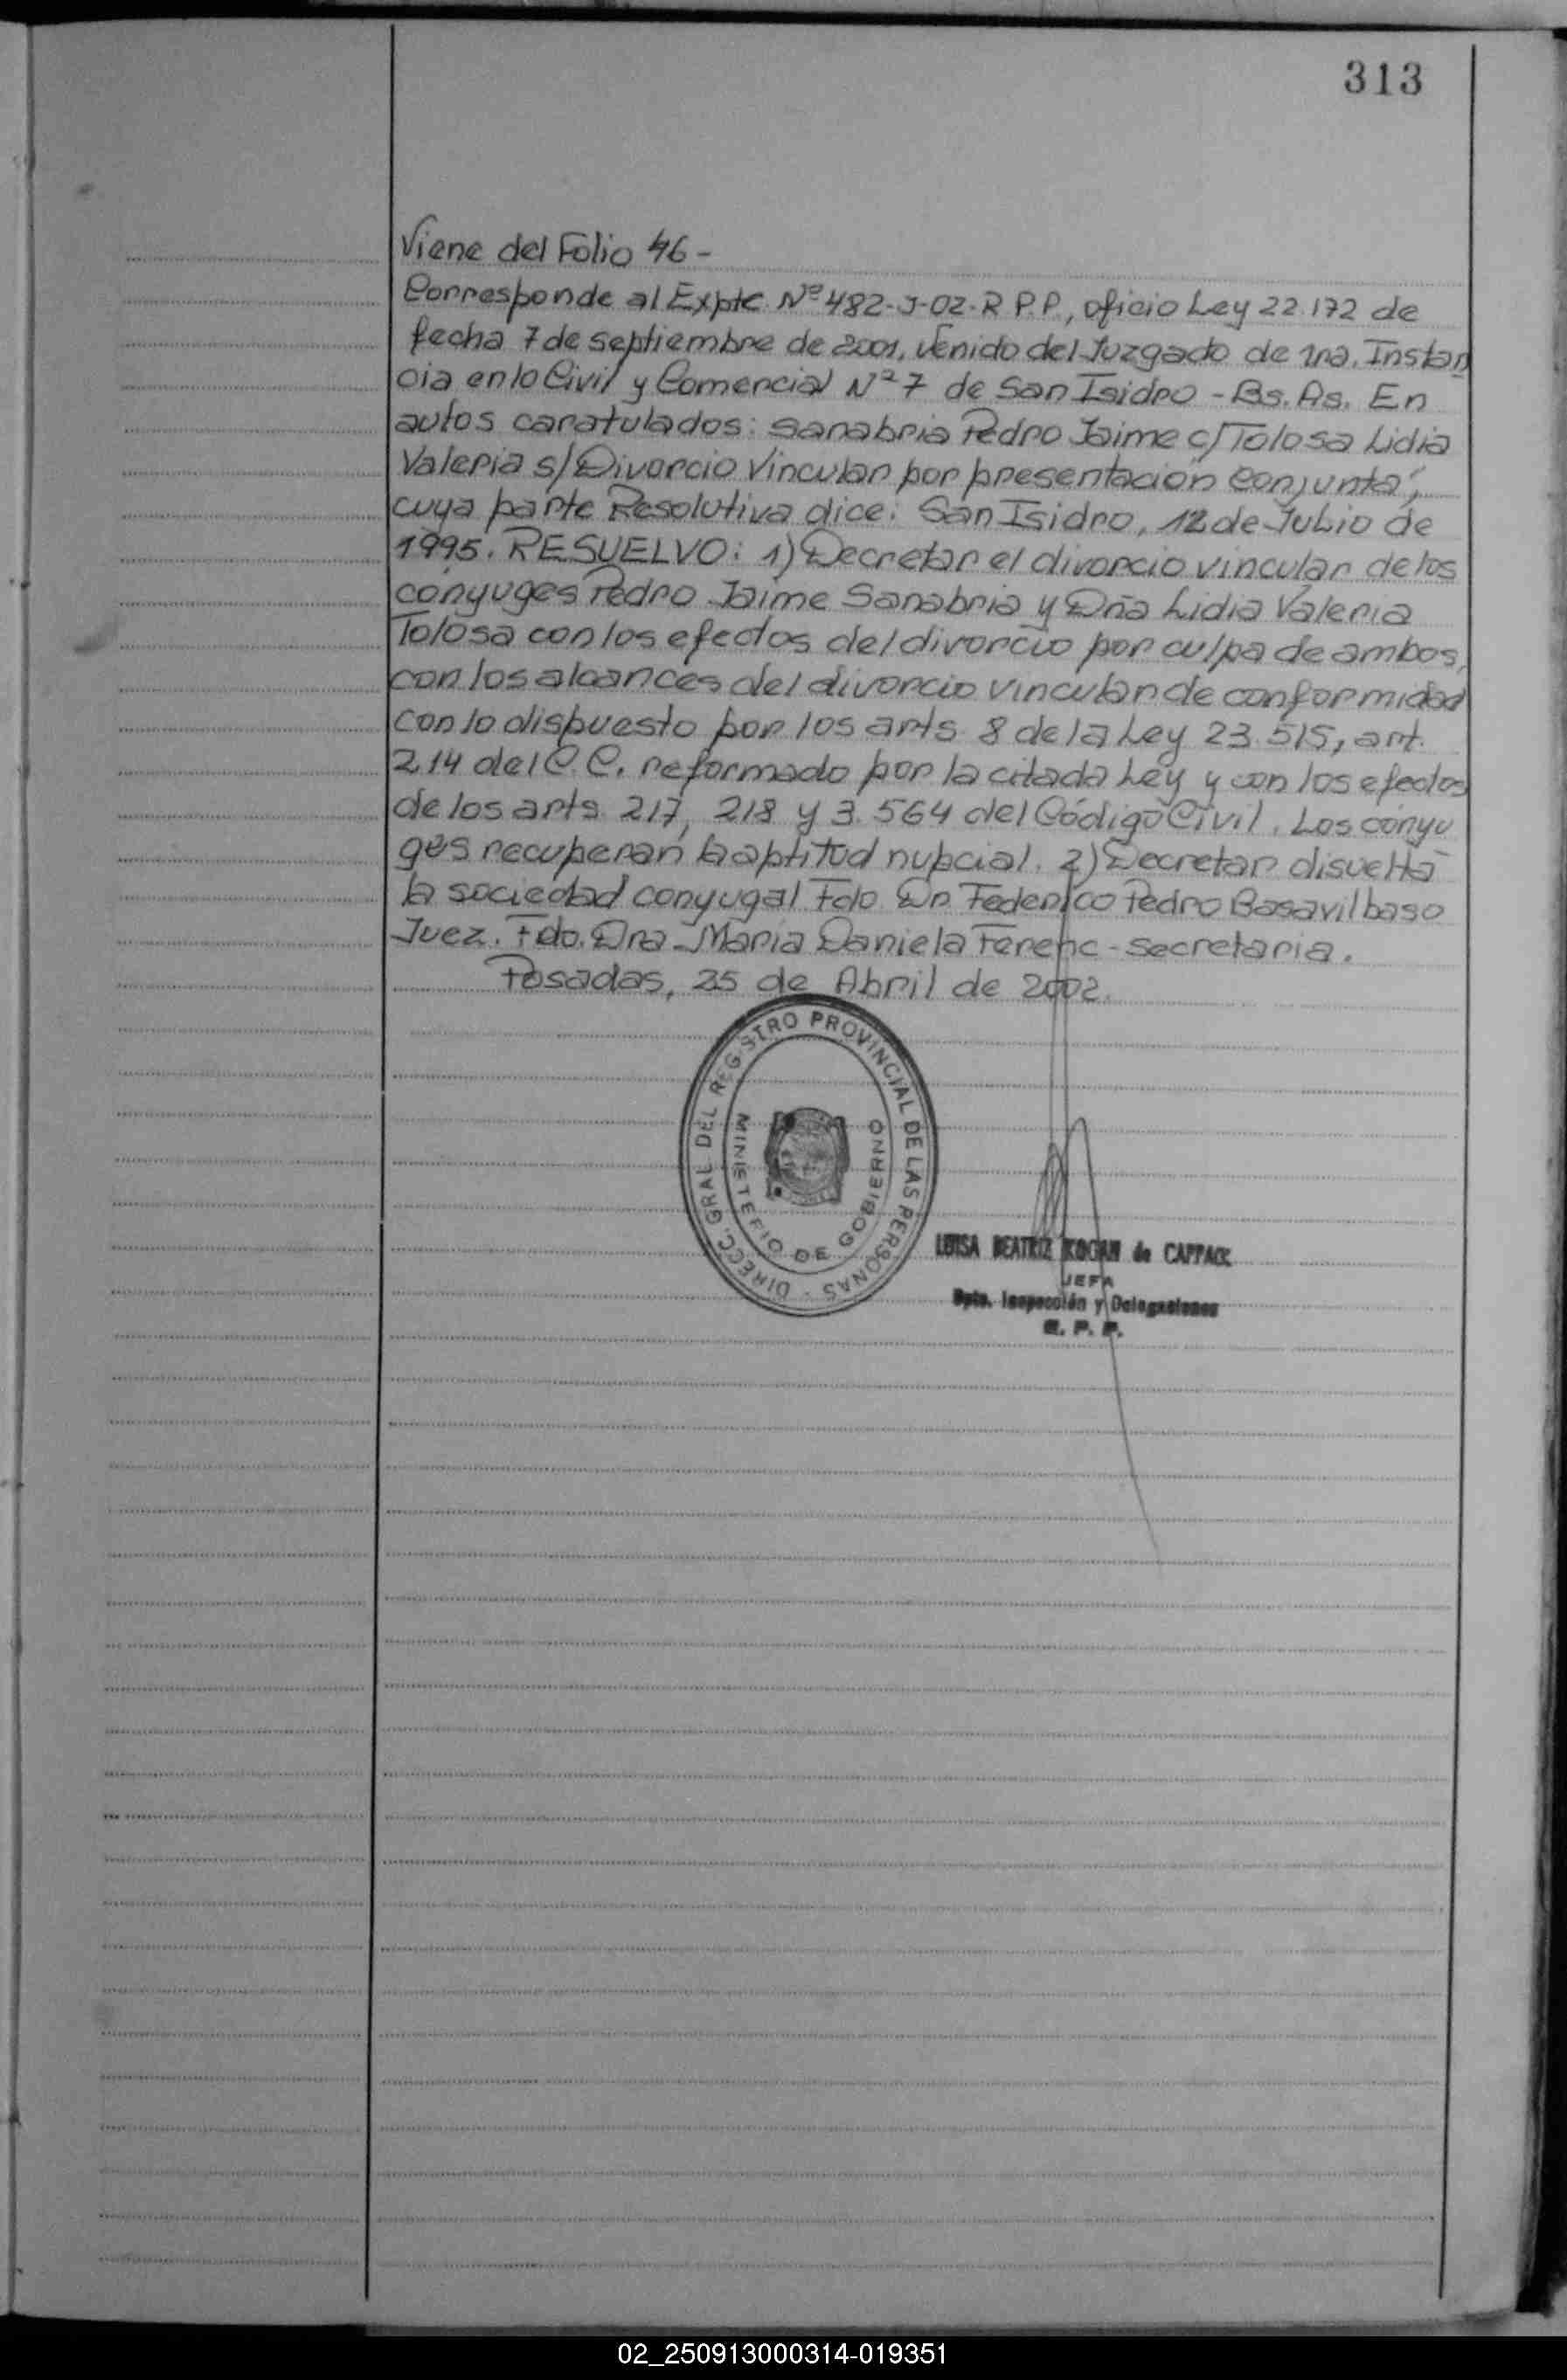 313
Viene del Folio 46-
Corresponde al Expte. Nº 482-J-02-R P.P., oficio Ley 22.172 de
fecha 7 de septiembre de 2001, venido del Juzgado de 1ra. Instan
cia en lo Civil y Comercial Nº 7 de San Isidro - Bs. As. En
autos caratulados: Sanabria Pedro Jaime c/ Tolosa Lidia
Valeria s/ Divorcio Vincular por presentación Conjunta",
cuya parte Resolutiva dice: San Isidro, 12 de Julio de
1995. RESUELVO: 1) Decretar el divorcio vincular de los
cónyuges Pedro Jaime Sanabria y Dña Lidia Valeria
Tolosa con los efectos del divorcio por culpa de ambos,
con los alcances del divorcio vincular de conformidad
con lo dispuesto por los arts. 8 de la Ley 23.515, art.
214 del C.C. reformado por la citada Ley y con los efectos
de los arts. 217, 218 y 3.564 del Código Civil. Los cónyu
ges recuperan la aptitud nupcial. 2) Decretar disuelta
la sociedad conyugal Fdo Dr Federico Pedro Basavilbaso
Juez. Fdo. Dra. María Daniela Ferenc - secretaria.
Posadas, 25 de Abril de 2002.
DIRECC. GRAL DEL REGISTRO PROVINCIAL DE LAS PERSONAS -
MINISTERIO DE GOBIERNO
LUISA BEATRIZ KOGAN de
JEFA
Dpto. Inspección y Delegaciones
R. P. P.
02_250913000314-019351